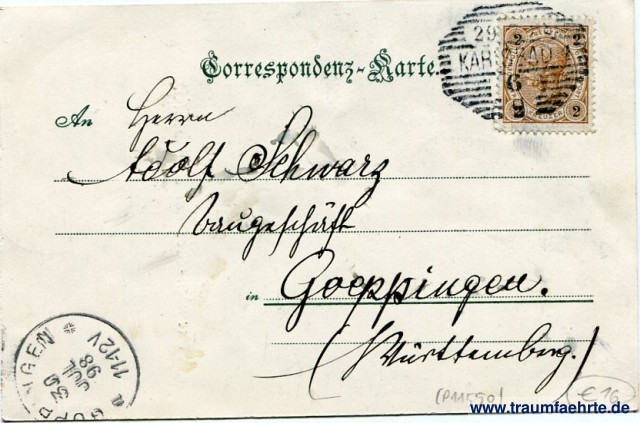 Correspondenz-Karte.
29
KARLSBAD
6
2 2
2 2
An Herrn
Adolf Schwarz
Baugeschäft
in Goeppingen.
(Württemberg.)
GÖPPINGEN
30
JUL
98
11-12V
(P11590)
€16
www.traumfaehrte.de